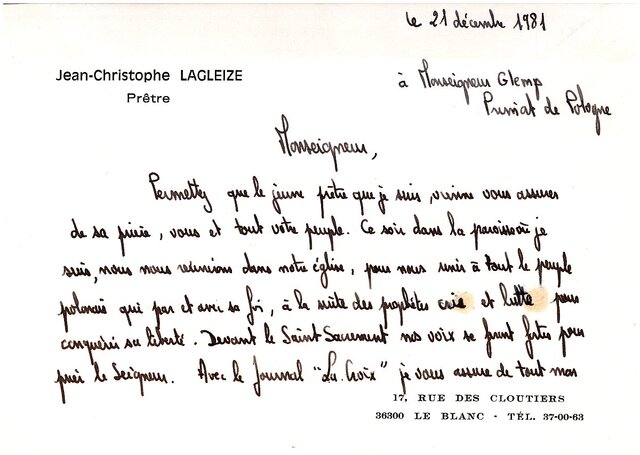 le 21 décembre 1981
Jean-Christophe LAGLEIZE
Prêtre
à Monseigneur Glemp
Primat de Pologne
Monseigneur,
Permettez que le jeune prêtre que je suis, vienne vous assurer
de sa prière, vous et tout votre peuple. Ce soir dans la paroisse où je
suis, nous nous réunirons dans notre église, pour nous unir à tout le peuple
polonais qui par et avec sa foi, à la suite des prophètes crie et lutte pour
conquérir sa liberté. Devant le Saint Sacrement nos voix se feront fortes pour
prier le Seigneur. Avec le Journal "La Croix" je vous assure de tout mon
17, RUE DES CLOUTIERS
36300 LE BLANC - TÉL. 37-00-63